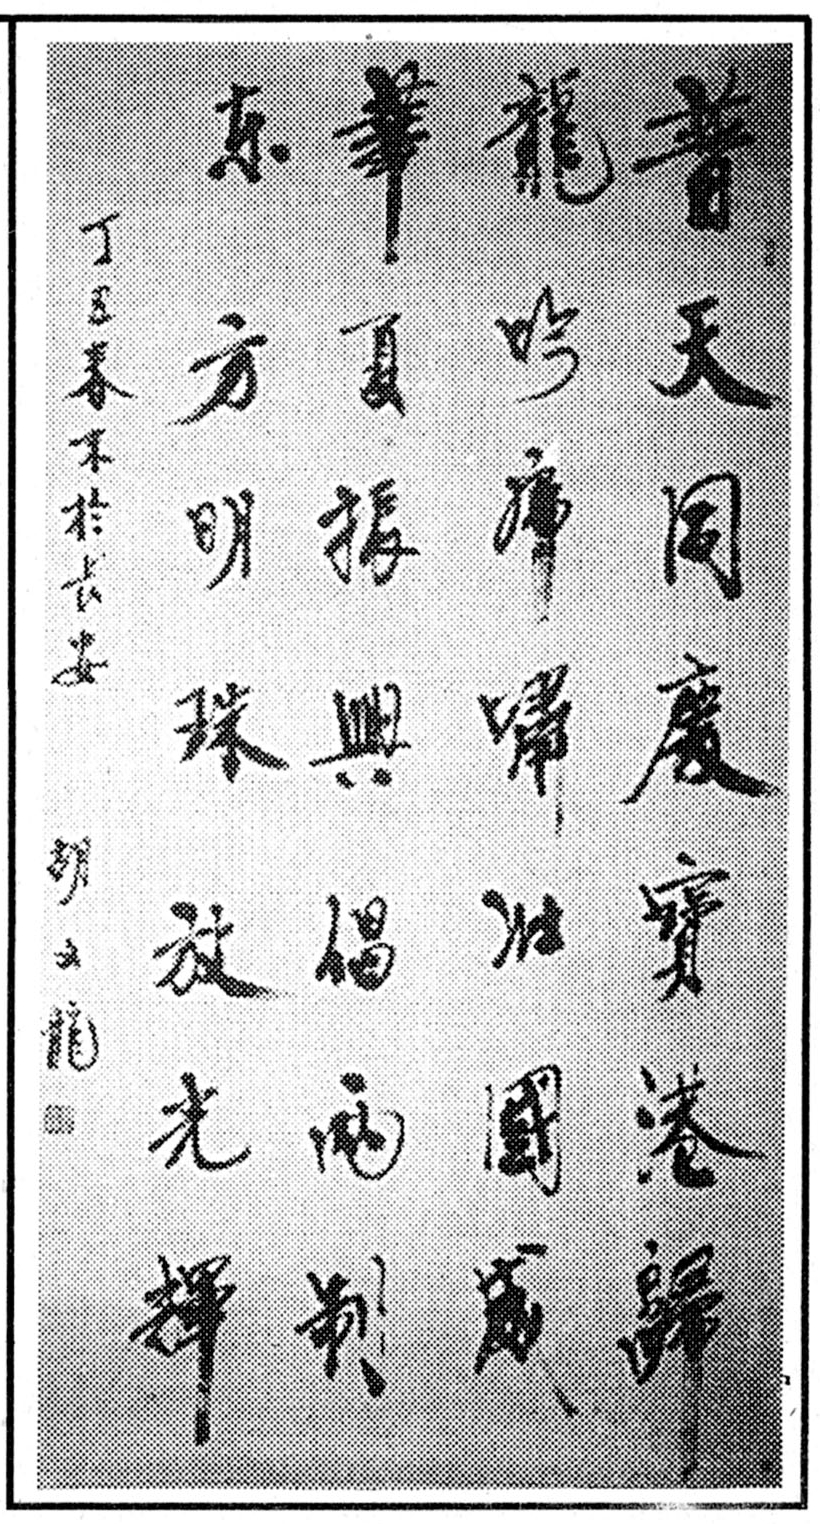 普天同慶寶港歸
龍吟虎嘯壯國威
華夏振興倡兩制
东方明珠放光輝
丁丑春末於长安 胡文龍